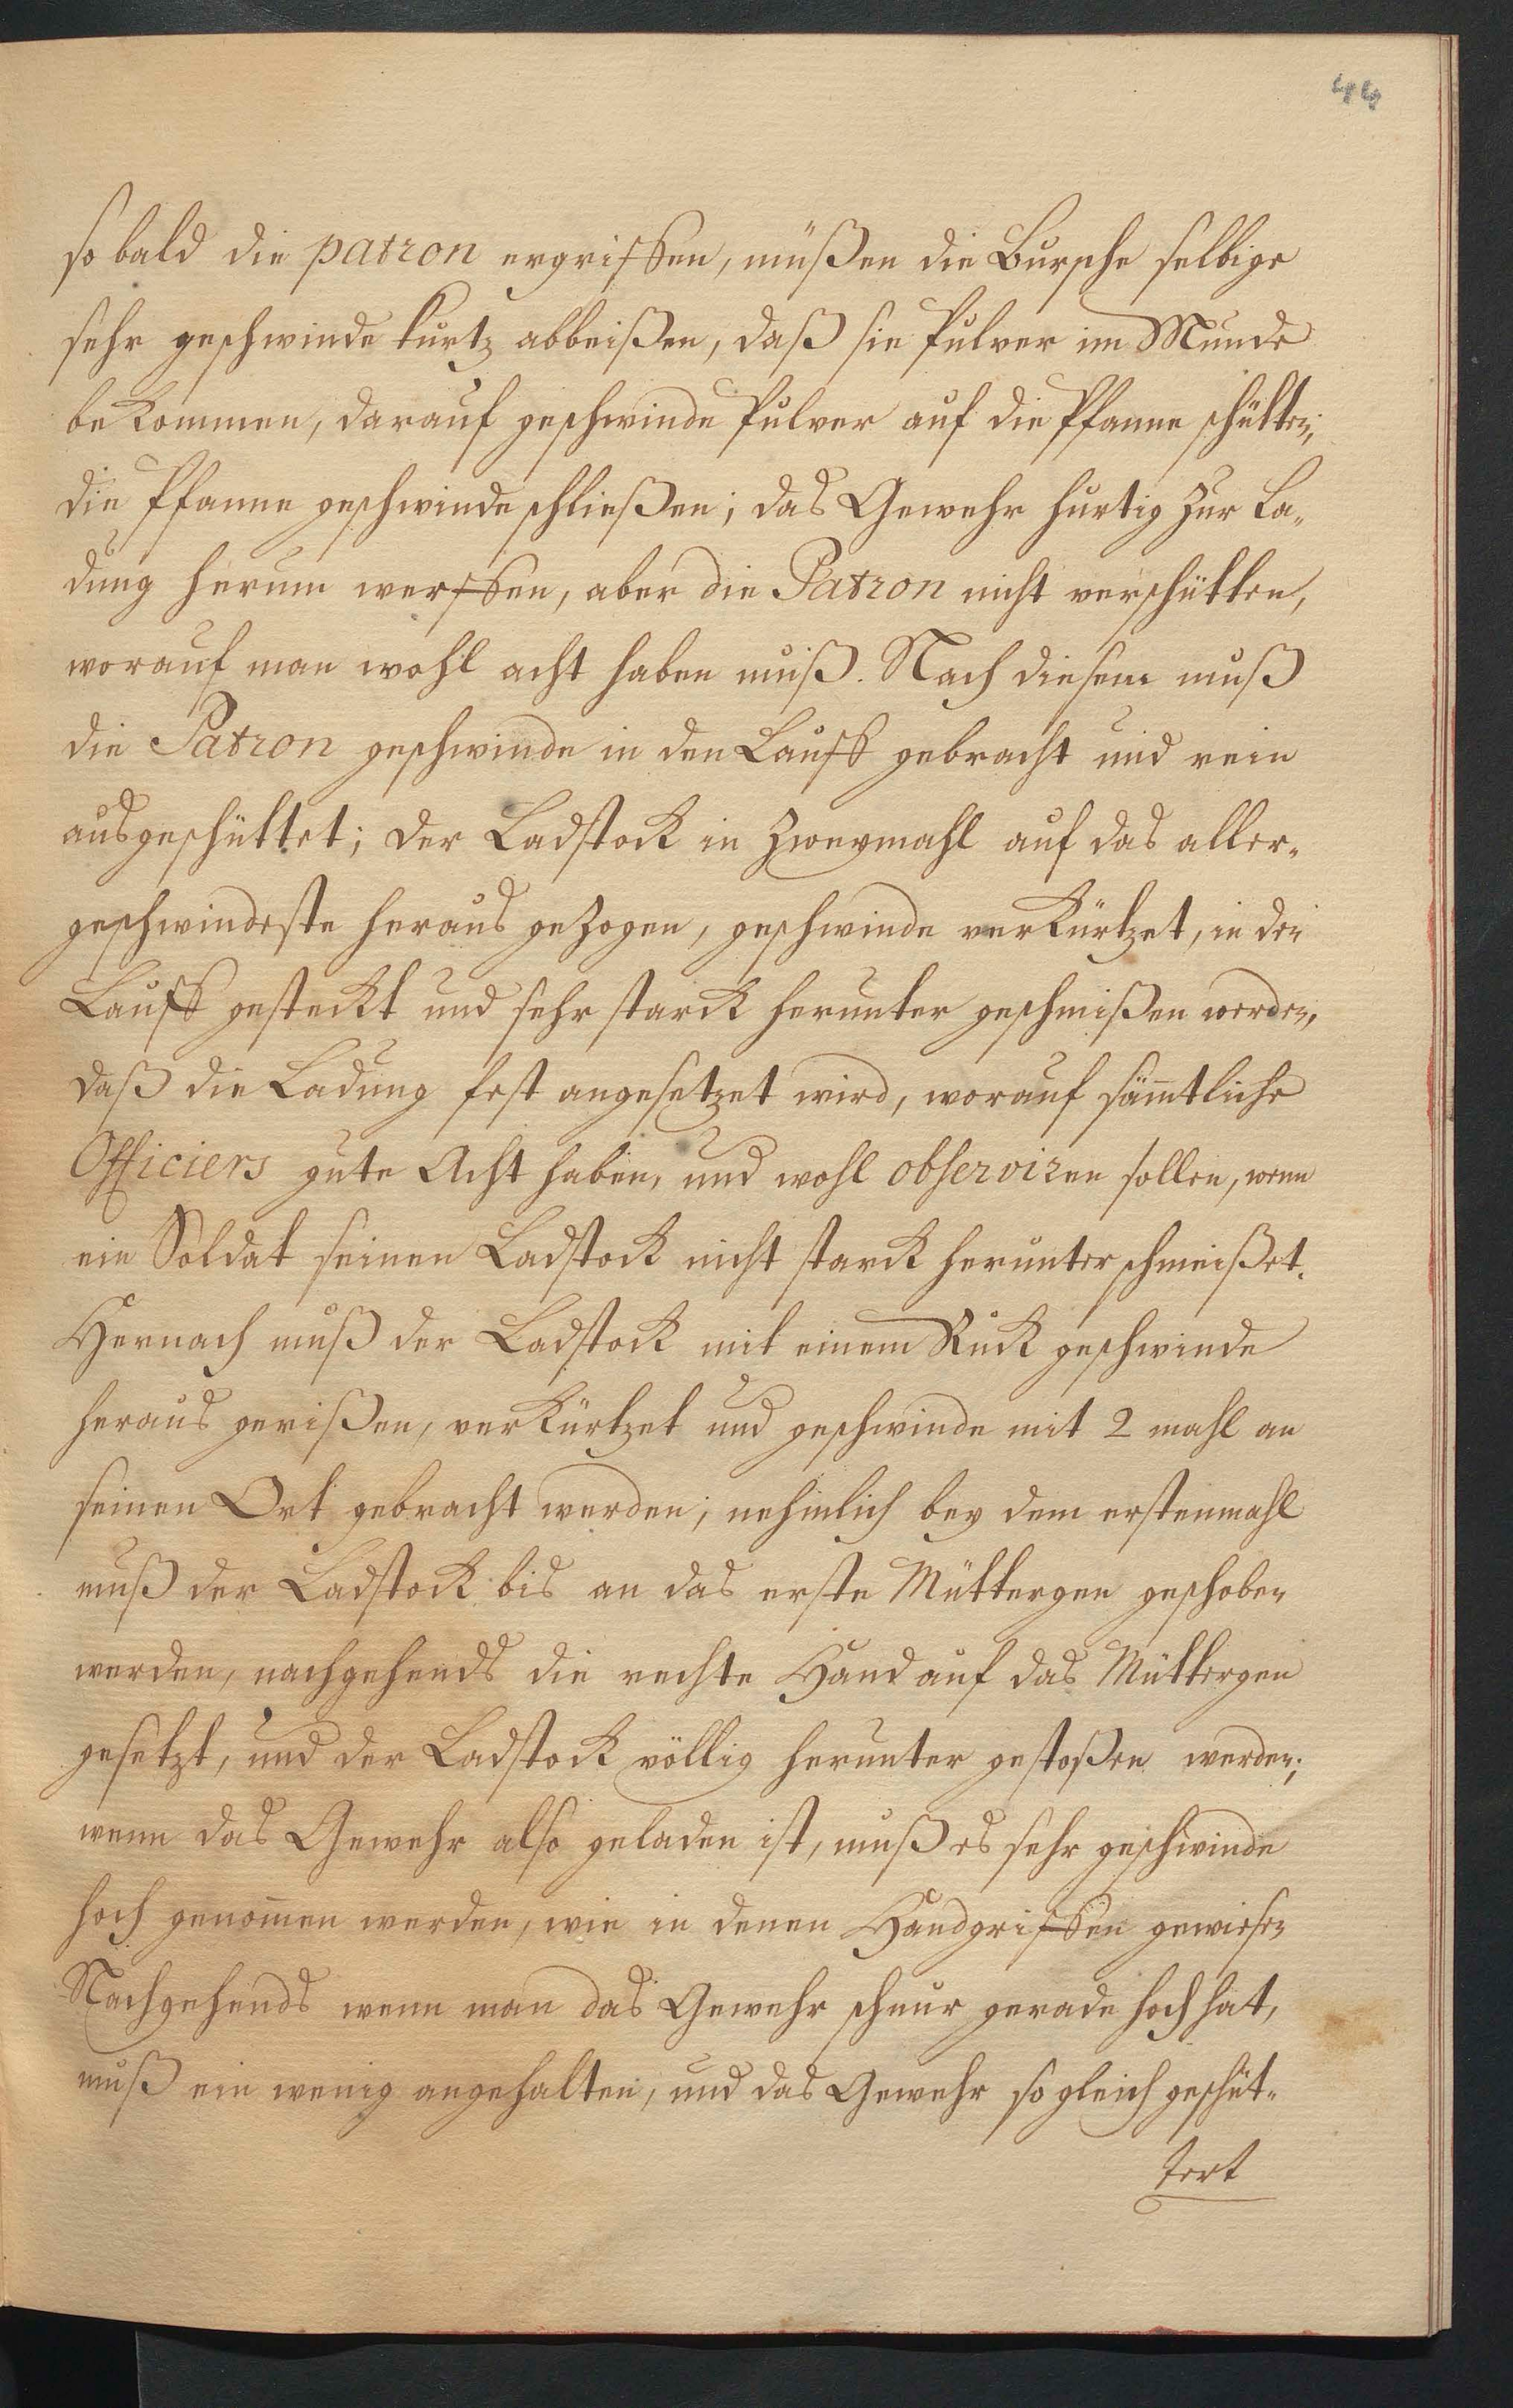 44
so bald die patron ergriffen, müßen die Bursche selbige
sehr geschwinde kurtz abbeißen, daß sie Pulver im Munde
bekommen, darauf geschwinde Pulver auf die Pfanne schütten,
die Pfanne geschwinde schließen; das Gewehr hurtig zur La-
dung herum werffen, aber die Patron nicht verschütten,
worauf man wohl acht haben muß. Nach diesem muß
die Patron geschwinde in den Lauff gebracht und rein
ausgeschüttet; der Ladstock in zweymahl auf das aller-
geschwindeste heraus gezogen, geschwinde verkürtzet, in den
Lauff gesteckt und sehr starck herunter geschmißen werden,
daß die Ladung fest angesetzet wird, worauf säm̄tliche
Officiers gute Acht haben, und wohl observiren sollen, wenn
ein Soldat seinen Ladstock nicht starck herunter schmeißet.
Hernach muß der Ladstock mit einem Ruck geschwinde
heraus gerißen, verkürtzet und geschwinde mit 2 mahl an
seinen Ort gebracht werden; nehmlich bey dem erstenmahl
muß der Ladstock bis an das erste Müttergen geschoben
werden, nachgehends die rechte Hand auf das Müttergen
gesetzt, und der Ladstock völlig herunter gestoßen werden;
wenn das Gewehr also geladen ist, muß es sehr geschwinde
hoch genom̄en werden, wie in denen Handgriffen gewiesen
Nachgehends wenn man das Gewehr schnur gerade hoch hat,
muß ein wenig angehalten, und das Gewehr so gleich geschüt-
tert